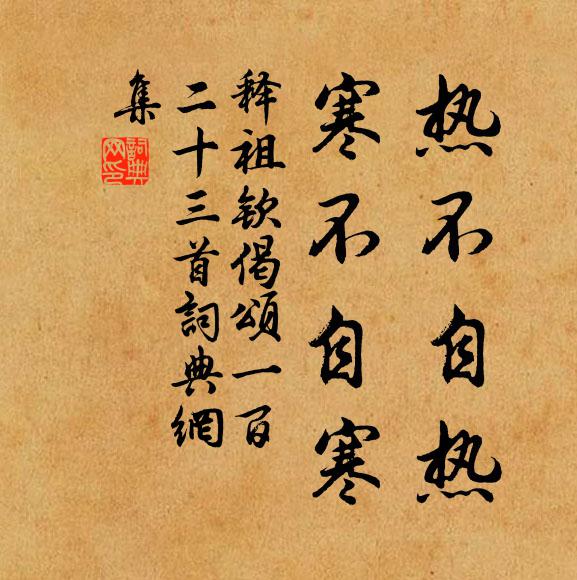 热不自热
寒不自寒
释祖钦偈頌一百
二十三首詞典網
集
詞典
网印